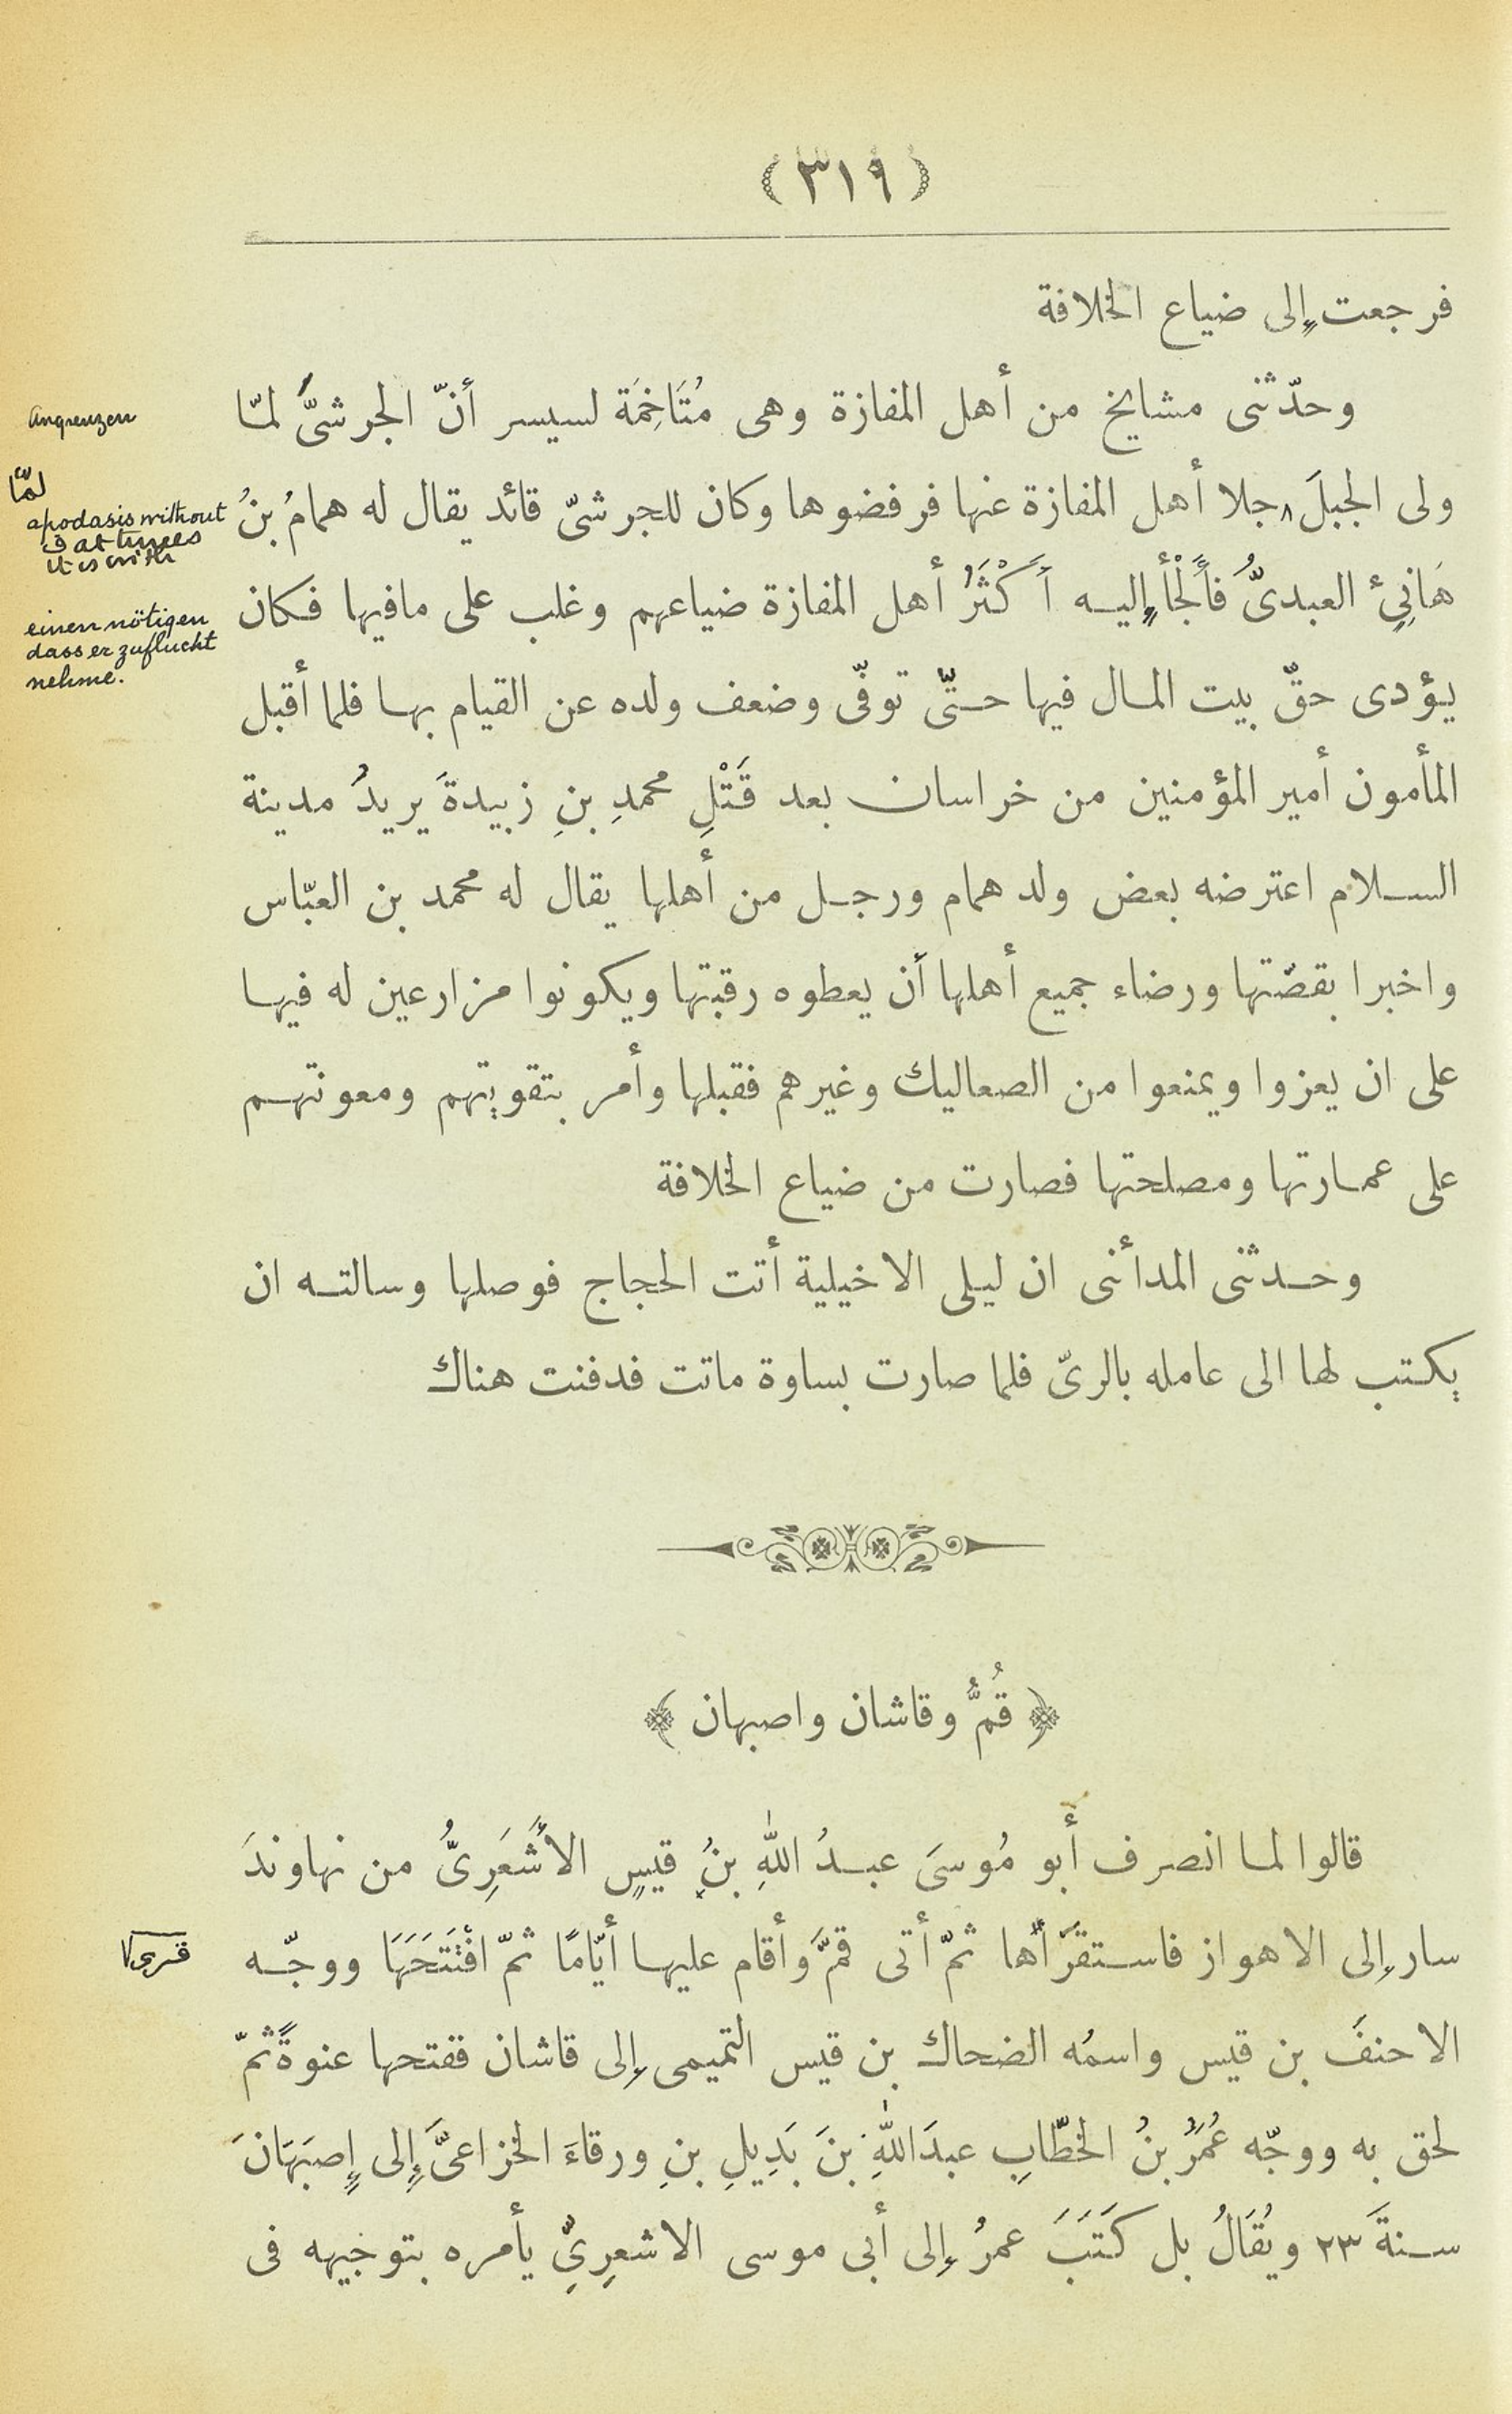 (٣١٩)
فرجعت إلى ضياع الخلافة
وحدّثنى مشايخ من أهل المفازة وهى مُتَاخِمَة لسيسر أنّ الجرشىَّ لمّا
Angrenzen
ولى الجبلَ ٨ جلا أهل المفازة عنها فرفضوها وكان للجرشىّ قائد يقال له همامُ بنُ
لمّا
apodasis without
ف at times
it is with
هَانِئٍ العبدىُّ فأَلْجَأَ إليه أَكْثَرُ أهل المفازة ضياعهم وغلب على مافيها فكان
einen nötigen
dass er zuflucht
nehme.
يؤدى حقّ بيت المال فيها حتّى توفّى وضعف ولده عن القيام بها فلما أقبل
المأمون أمير المؤمنين من خراسان بعد قَتْلِ محمدِ بنِ زبيدةَ يريدُ مدينة
السلام اعترضه بعض ولد همام ورجل من أهلها يقال له محمد بن العبّاس
واخبرا بقصّتها ورضاء جميع أهلها أن يعطوه رقبتها ويكونوا مزارعين له فيها
على ان يعزوا ويمنعوا من الصعاليك وغيرهم فقبلها وأمر بتقويتهم ومعونتهم
على عمارتها ومصلحتها فصارت من ضياع الخلافة
وحدثنى المدائنى ان ليلى الاخيلية أتت الحجاج فوصلها وسالته ان
يكتب لها الى عامله بالرىّ فلما صارت بساوة ماتت فدفنت هناك
﴿ قُمُّ وقاشان واصبهان ﴾
قالوا لما انصرف أبو مُوسَى عبدُ اللهِ بنُ قيسٍ الأَشْعَرِىُّ من نهاوندَ
سار إلى الاهواز فاستقرَأها ثمّ أتى قمَّ وأقام عليها أيّامًا ثمّ افْتَتَحَهَا ووجّه
قرى√
الاحنفَ بن قيس واسمُه الضحاك بن قيس التميمى إلى قاشان ففتحها عنوةً ثمّ
لحق به ووجّه عُمَرُ بنُ الخطّابِ عبدَ اللهِ بنَ بَدِيلِ بنِ ورقاءَ الخزاعىَّ إلى إِصبَهَانَ
سنةَ ٢٣ ويُقَالُ بل كَتَبَ عمرُ إلى أبى موسى الاشعرِىِّ يأمره بتوجيهه فى